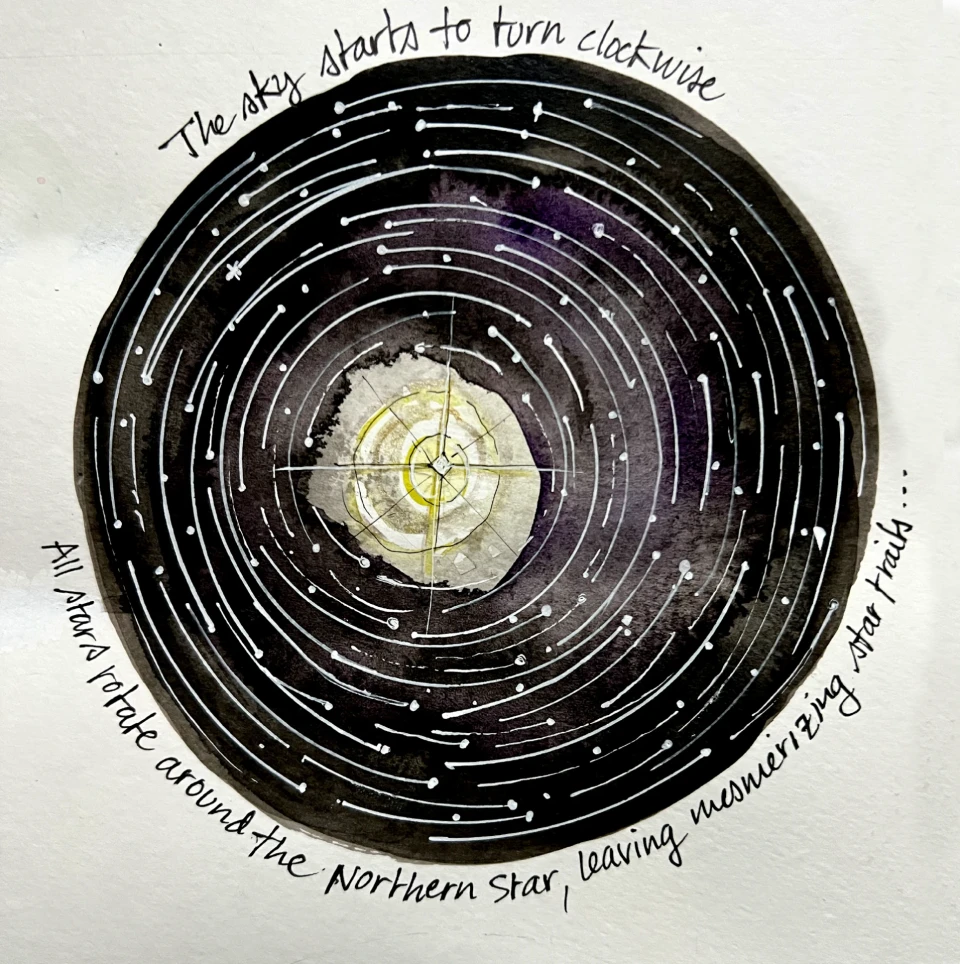 The sky starts to turn clockwise
All stars rotate around the Northern Star, leaving mesmerizing star trails...